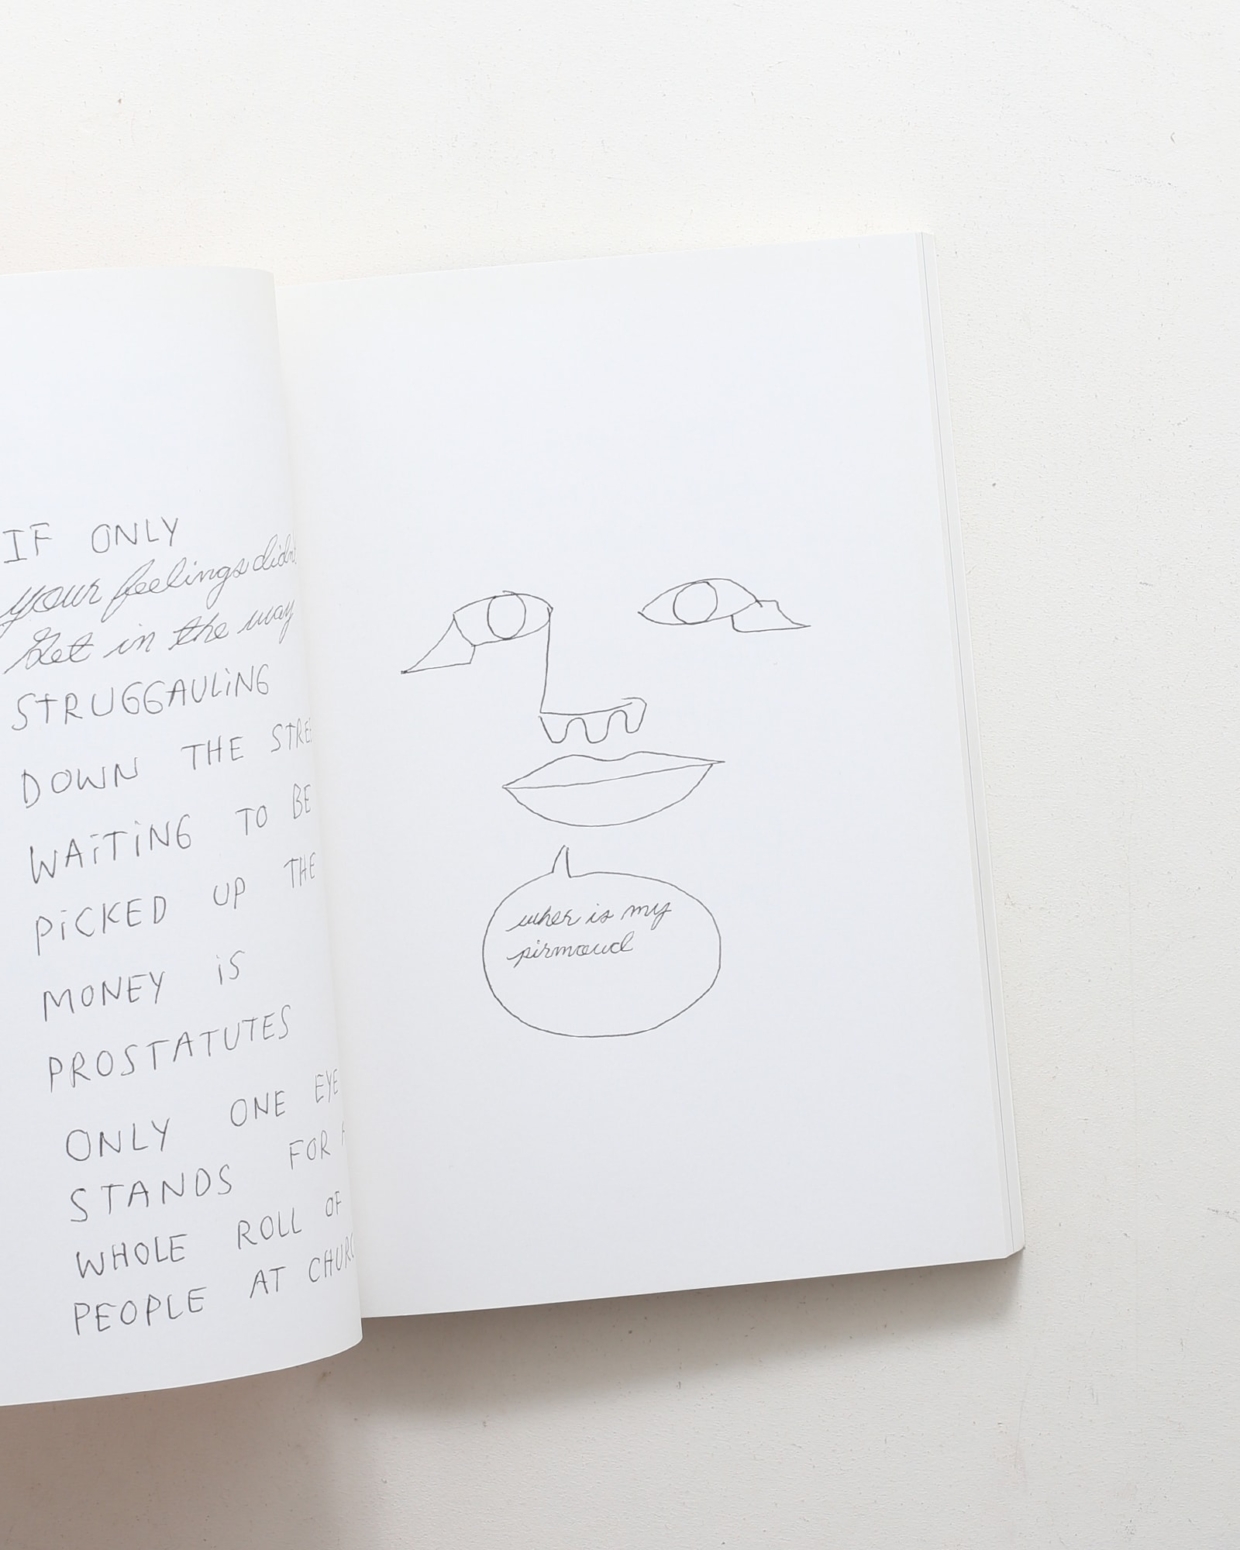 IF ONLY
your feelings didn't
Get in the way
STRUGGAULiNG
DOWN THE STREE
WAiTiNG TO BE
PiCKED UP THE
MONEY iS
PROSTATUTES
ONLY ONE EYE
STANDS FOR A
WHOLE ROLL OF
PEOPLE AT CHURC
wher is my
pirmoud